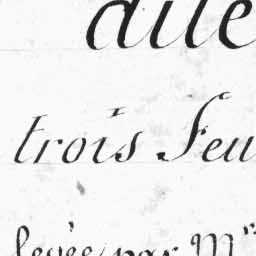 dite
trois Feu
levée par Mr